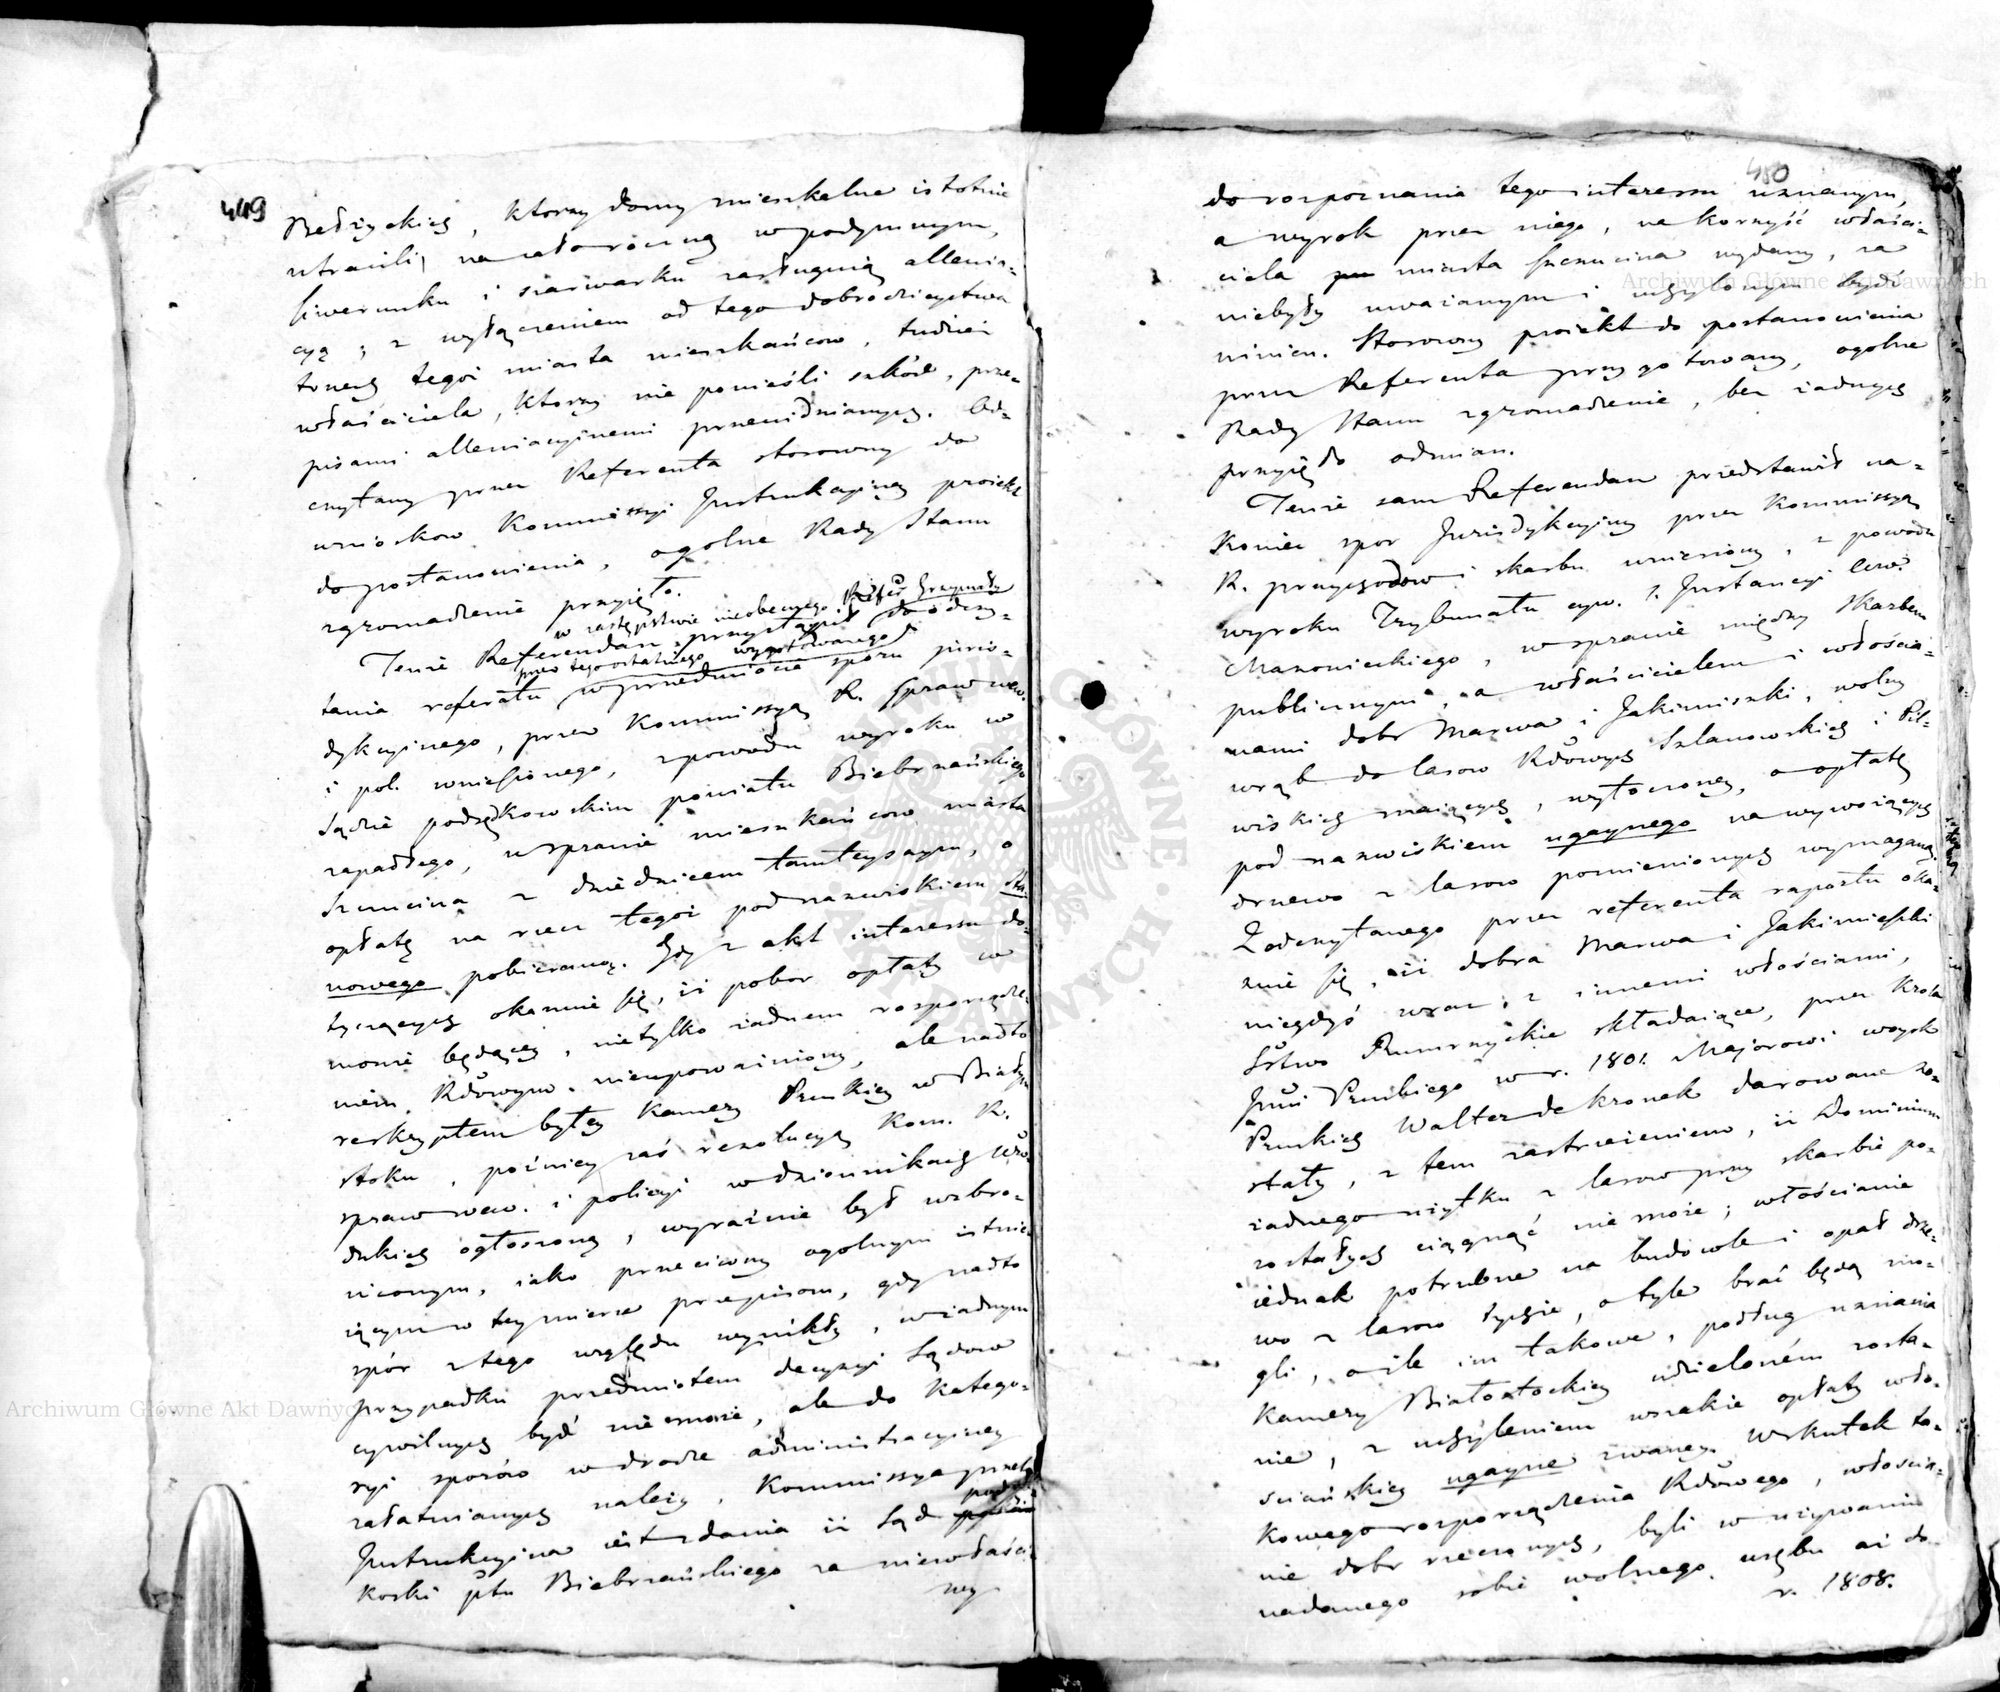 449
Bełżyckich, ktorzy domy mieszkalne istotnie
utracili, na całoroczną w podymnym,
liwerunku i szarwarku zasługuią allewia-
cyą; z wyłączeniem od tego dobrodzieystwa
innych tegoż miasta mieszkańcow, tudzież
właściciela, ktorzy nie ponieśli szkód, prze-
pisami allewiacyinemi przewidzianych. Od-
czytany przez Referenta stosowny do
wnioskow Kommissyi Instrukcyiney proiekt
do postanowienia, ogolne Rady Stanu
zgromadzenie przyięło.
w zastępstwie nieobecnego Refer Grzymały
Tenże Referendarz przystąpił do odczy-
przez tego ostatniego wygotowanego
tania referatu w przedmiocie sporu juris-
dykcyinego, przez Kommissyą R. spraw wew.
i pol. wniesionego, z powodu wyroku w
Sądzie podsędkowskim powiatu Biebrzańskiego
zapadłego, w sprawie mieszkańcow miasta
Szczucina z dziedzicem tamteyszym, o
opłatę na rzecz tegoż pod nazwiskiem
nowego pobieraną. Gdy z akt interessu do-
tyczących okazuie się, iż pobor opłaty w
mowie będącey, nietylko żadnem rozporządze-
niem Rdowym nieupoważniony, ale nadto
reskryptem byłey Kamery Pruskiey w Białym
stoku, poźniey zaś rezolucyą Kom. R.
spraw wew. i policyi w dziennikach Wzwo-
dzkich ogłoszoną, wyraźnie był wzbro-
nionym, iako przeciwny ogolnym istnie-
iącym w tey mierze przepisom, gdy nadto
spór z tego względu wynikły, w żadnym
przypadku przedmiotem decyzyi Sądow
cywilnych być nie może, ale do katego-
ryi sporów w drodze administracyiney
załatwianych należy, Kommissya przeto
Instrukcyina iest zdania iż Sąd
koski ptu Biebrzańskiego za niewłaści-
wy
450
do rozpoznania tego interessu uznanym,
a wyrok przez niego, na korzyść właści-
ciela miasta Szczucina wydany, za
niebyły uważanym i uchylonym być
winien. Stosowny proiekt do postanowienia
przez Referenta przygotowany, ogolne
Rady Stanu zgromadzenie, bez żadnych
przyięło odmian.
Tenże sam Referendarz przedstawił na-
koniec spor Jurisdykcyiny przez Kommissyą
R. przychodow i skarbu wniesiony, z powodu
wyroku Trybunału cyw. I. Instancyi Wew.
Mazowieckiego, w sprawie między Skarbem
publicznym, a właścicielem i włościa-
nami dobr Marwa i Jakimiszki, wolny
wrąb do lasow Rdowych Szlanowskich i Pil-
wiskich maiących, wytoczoney, o opłatę
pod nazwiskiem ugaynego na wywożących
drzewo z lasow pomienionych wymaganą.
Z odczytanego przez referenta raportu oka-
zuie się, iż dobra Marwa i Jakimiszki
niegdyś wraz z innemi włościami,
Sstwo składaiące, przez Krola
Jmci Pruskiego w r. 1801. Majorowi woysk
Pruskich Walter de Kronek darowane zo-
stały, z tem zastrzeżeniem, iż Dominium
żadnego użytku z lasow przy skarbie po-
zostałych ciągnąć nie może; włościanie
iednak potrzebne na budowle i opał drze-
wo z lasow tychże, o tyle brać będą mo-
gli, o ile im takowe, podług uznania
Kamery Białostockiey udzielonem zosta-
nie, z uchyleniem wszakże opłaty wło-
ściańskiey ugayne zwaney. Wskutek ta-
kowego rozporządzenia Rdowego, włościa-
nie dobr rzeczonych, byli w używaniu
nadanego sobie wolnego wrębu aż do
r. 1808.
Archiwum Główne Akt Dawnych
Archiwum Główne Akt Dawnych
ARCHIWUM GŁÓWNE
AKT DAWNYCH